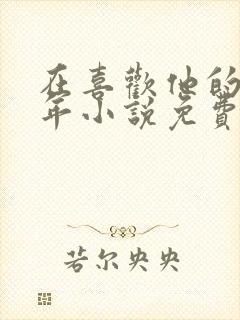 在喜歡他的
年小說免費
若尔央央